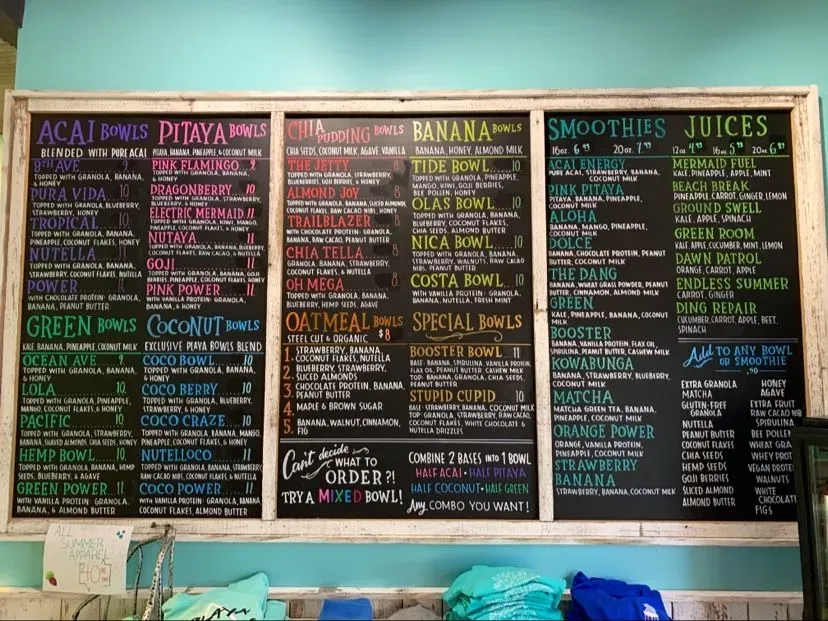 ACAI BOWLS
BLENDED WITH PURE ACAI
8TH AVE 9
TOPPED WITH GRANOLA, BANANA,
& HONEY
PURA VIDA 10
TOPPED WITH GRANOLA, BLUEBERRY,
STRAWBERRY, HONEY
TROPICAL 10
TOPPED WITH GRANOLA, BANANA,
PINEAPPLE, COCONUT FLAKES, HONEY
NUTELLA 11
TOPPED WITH GRANOLA, BANANA,
STRAWBERRY, COCONUT FLAKES, NUTELLA
POWER 11
WITH CHOCOLATE PROTEIN: GRANOLA,
BANANA, PEANUT BUTTER
PITAYA BOWLS
PITAYA, BANANA, PINEAPPLE & COCONUT MILK
PINK FLAMINGO 9
TOPPED WITH GRANOLA, BANANA,
& HONEY
DRAGONBERRY 10
TOPPED WITH GRANOLA, BANANA,
STRAWBERRY, & HONEY
ELECTRIC MERMAID 11
TOPPED WITH GRANOLA, KIWI, MANGO,
PINEAPPLE, COCONUT FLAKES, & HONEY
NUTAYA 11
TOPPED WITH GRANOLA, BANANA, BLUEBERRY,
COCONUT FLAKES, & NUTELLA
GOJI 11
TOPPED WITH GRANOLA, BANANA, GOJI
BERRIES, PINEAPPLE, COCONUT FLAKES & HONEY
PINK POWER 11
WITH VANILLA PROTEIN: GRANOLA, BANANA,
& HONEY
GREEN BOWLS
KALE, BANANA, PINEAPPLE, COCONUT MILK
OCEAN AVE 9
TOPPED WITH GRANOLA, BANANA,
& HONEY
LOLA 10
TOPPED WITH GRANOLA, PINEAPPLE,
MANGO, COCONUT FLAKES, & HONEY
PACIFIC 10
TOPPED WITH GRANOLA, STRAWBERRY,
BANANA, SLICED ALMONDS, CHIA SEEDS, HONEY
HEMP BOWL 10
TOPPED WITH GRANOLA, BANANA, HEMP
SEEDS, BLUEBERRY, & AGAVE
GREEN POWER 11
WITH VANILLA PROTEIN: GRANOLA,
BANANA, & ALMOND BUTTER
COCONUT BOWLS
EXCLUSIVE PLAYA BOWLS BLEND
COCO BOWL 10
TOPPED WITH GRANOLA, BANANA,
& HONEY
COCO BERRY 10
TOPPED WITH GRANOLA, BLUEBERRY,
STRAWBERRY, & HONEY
COCO CRAZE 10
TOPPED WITH GRANOLA, BANANA, MANGO,
PINEAPPLE, COCONUT FLAKES, & HONEY
NUTELLOCO 11
TOPPED WITH GRANOLA, BANANA, STRAWBERRY,
RAW CACAO NIBS, COCONUT FLAKES, & NUTELLA
COCO POWER 11
WITH VANILLA PROTEIN: GRANOLA,
BANANA, & ALMOND BUTTER
CHIA PUDDING BOWLS
CHIA SEEDS, COCONUT MILK, AGAVE, VANILLA
THE JETTY 8
TOPPED WITH GRANOLA, STRAWBERRY,
BLUEBERRY, GOJI BERRIES, & HONEY
ALMOND JOY 8
TOPPED WITH GRANOLA, BANANA, SLICED ALMONDS,
COCONUT FLAKES, RAW CACAO NIBS, HONEY
TRAILBLAZER 8
TOPPED WITH CHOCOLATE PROTEIN, GRANOLA,
BANANA, RAW CACAO, PEANUT BUTTER
CHIA TELLA 8
GRANOLA, BANANA, STRAWBERRY,
COCONUT FLAKES, & NUTELLA
OH MEGA 8
TOPPED WITH GRANOLA, BANANA,
BLUEBERRY, HEMP SEEDS, AGAVE
BANANA BOWLS
BANANA, HONEY, ALMOND MILK
TIDE BOWL 10
TOPPED WITH GRANOLA, PINEAPPLE,
MANGO, KIWI, GOJI BERRIES,
BEE POLLEN, HONEY
OLAS BOWL 10
TOPPED WITH GRANOLA, BANANA,
BLUEBERRY, COCONUT FLAKES,
CHIA SEEDS, ALMOND BUTTER
NICA BOWL 10
TOPPED WITH GRANOLA, BANANA,
STRAWBERRY, WALNUTS, RAW CACAO
NIBS, PEANUT BUTTER
COSTA BOWL 10
WITH VANILLA PROTEIN: GRANOLA,
BANANA, NUTELLA, FRESH MINT
OATMEAL BOWLS
STEEL CUT & ORGANIC $8
1. STRAWBERRY, BANANA,
COCONUT FLAKES, NUTELLA
2. BLUEBERRY, STRAWBERRY,
SLICED ALMONDS
3. CHOCOLATE PROTEIN, BANANA,
PEANUT BUTTER
4. MAPLE & BROWN SUGAR
5. BANANA, WALNUT, CINNAMON,
FIG
SPECIAL BOWLS
BOOSTER BOWL 11
BASE: BANANA, SPIRULINA, VANILLA PROTEIN,
FLAX OIL, PEANUT BUTTER, CASHEW MILK
TOP: BANANA, GRANOLA, CHIA SEEDS,
PEANUT BUTTER
STUPID CUPID 10
BASE: STRAWBERRY, BANANA, COCONUT MILK
TOP: GRANOLA, STRAWBERRY, RAW CACAO,
COCONUT FLAKES, WHITE CHOCOLATE &
NUTELLA DRIZZLES
Can't decide
WHAT TO
ORDER?!
TRY A MIXED BOWL!
COMBINE 2 BASES INTO 1 BOWL
HALF ACAI • HALF PITAYA
HALF COCONUT • HALF GREEN
Any COMBO YOU WANT!
SMOOTHIES
16oz. 6.49 20oz. 7.49
ACAI ENERGY
PURE ACAI, STRAWBERRY, BANANA,
COCONUT MILK
PINK PITAYA
PITAYA, BANANA, PINEAPPLE,
COCONUT MILK
ALOHA
BANANA, MANGO, PINEAPPLE,
COCONUT MILK
DOLCE
BANANA, CHOCOLATE PROTEIN, PEANUT
BUTTER, COCONUT MILK
THE DANG
BANANA, WHEAT GRASS POWDER, PEANUT
BUTTER, CINNAMON, ALMOND MILK
GREEN
KALE, PINEAPPLE, BANANA, COCONUT
MILK
BOOSTER
BANANA, VANILLA PROTEIN, FLAX OIL,
SPIRULINA, PEANUT BUTTER, CASHEW MILK
KOWABUNGA
BANANA, STRAWBERRY, BLUEBERRY,
COCONUT MILK
MATCHA
MATCHA GREEN TEA, BANANA,
PINEAPPLE, COCONUT MILK
ORANGE POWER
ORANGE, VANILLA PROTEIN,
PINEAPPLE, COCONUT MILK
STRAWBERRY
BANANA
STRAWBERRY, BANANA, COCONUT MILK
JUICES
12oz 16oz 20oz
MERMAID FUEL
KALE, PINEAPPLE, APPLE, MINT
BEACH BREAK
PINEAPPLE, CARROT, GINGER, LEMON
GROUND SWELL
KALE, APPLE, SPINACH
GREEN ROOM
KALE, APPLE, CUCUMBER, MINT, LEMON
DAWN PATROL
ORANGE, CARROT, APPLE
ENDLESS SUMMER
CARROT, GINGER
DING REPAIR
CUCUMBER, CARROT, APPLE, BEET,
SPINACH
Add TO ANY BOWL
OR SMOOTHIE
.90
EXTRA GRANOLA
MATCHA
GLUTEN-FREE
GRANOLA
NUTELLA
PEANUT BUTTER
COCONUT FLAKES
CHIA SEEDS
HEMP SEEDS
GOJI BERRIES
SLICED ALMOND
ALMOND BUTTER
HONEY
AGAVE
EXTRA FRUIT
RAW CACAO NIB
SPIRULINA
BEE POLLEN
WHEAT GRA
WHEY PROT
VEGAN PROTEI
WALNUTS
WHITE
CHOCOLAT
FIGS
ALL
SUMMER
APPAREL